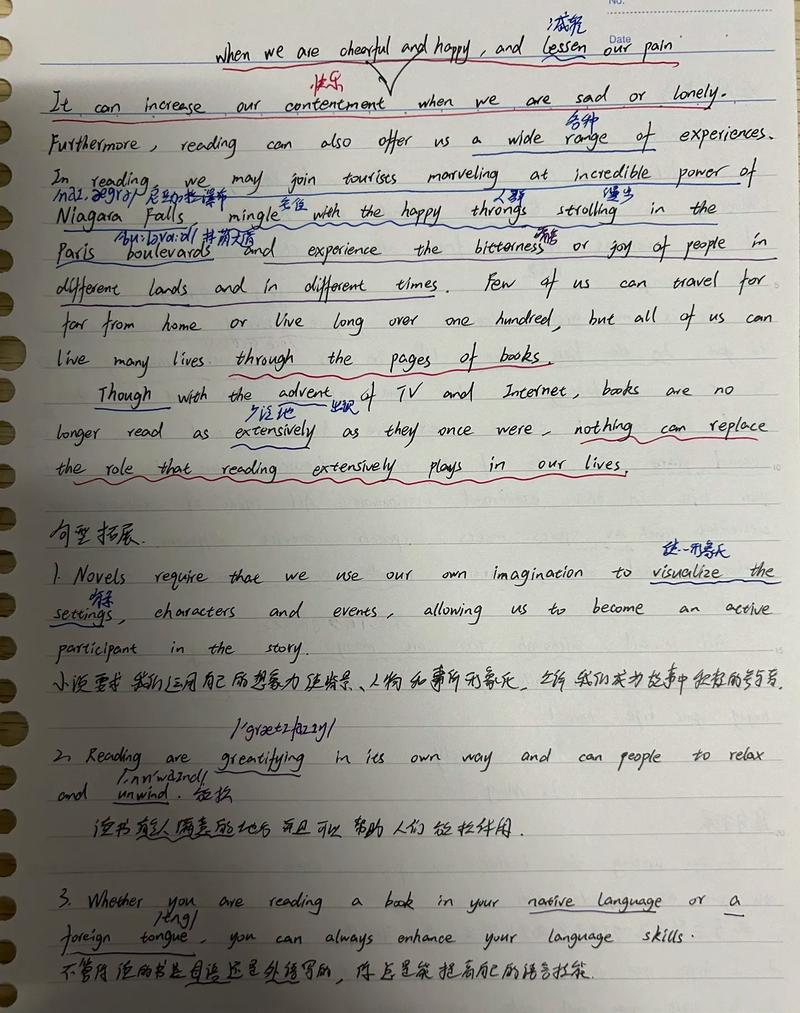 No.
减轻
Date
when we are cheerful and happy, and lessen our pain
快乐
It can increase our contentment when we are sad or lonely.
各种
Furthermore, reading can also offer us a wide range of experiences.
In reading we may join tourists marveling at incredible power of
人群 漫步
Niagara Falls, mingle with the happy throngs strolling in the
Paris boulevards and experience the bitterness or joy of people in
different lands and in different times. Few of us can travel far
far from home or live long over one hundred, but all of us can
live many lives through the pages of books.
Though with the advent of TV and Internet, books are no
广泛地 出现
longer read as extensively as they once were, nothing can replace
the role that reading extensively plays in our lives.
句型拓展.
1. Novels require that we use our own imagination to visualize the
背景
settings, characters and events, allowing us to become an active
participant in the story.
小说要求我们运用自己的想象力使背景、人物和事件形象化, 我们成为故事中积极的参与者.
2. Reading are greatifying in its own way and can people to relax
and unwind. 放松
读书有令人满意的地方 并且可以帮助人们放松作用.
3. Whether you are reading a book in your native language or a
/tʌŋ/
foreign tongue, you can always enhance your language skills.
不管你读的书是母语还是外语写的, 你总是能提高自己的语言技能.